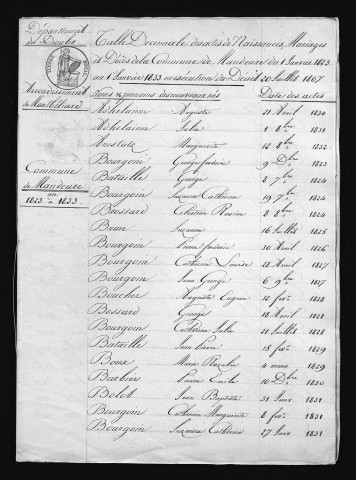 Département
du Doubs
Arrondissement
de Montbéliard
Commune
de Mandeure
an
1823 à 1833
Table Decennale des actes de Naissances, Mariages
et Décès de la Commune de Mandeure du 1 Janvier 1823
au 1 Janvier 1833 en exécution du Décret 20 Juillet 1807
Noms & prénoms des nouveaux nés Date des actes
Adhelaine Auguste 21 Avril 1830
Adhelaine Julie 1 8bre 1831
Amstutz Marguerite 12 8bre 1832
Bourgoin George frédéric 9 Dbre 1823
Bataille George 8 7bre 1824
Bourgoin Suzanne Catherine 19 7bre 1824
Brossard Célestine Rosine 8 8bre 1824
Brun Suzanne 16 Juillet 1825
Bourgoin Pierre frédéric 30 Avril 1826
Bourgoin Catherine Louise 22 Avril 1827
Bourgoin Jean George 6 9bre 1827
Boucher Auguste Eugene 12 fevr 1828
Bossard George 18 Avril 1828
Bourgoin Catherine Julie 21 Juillet 1828
Bataille Jean Pierre 18 fevr 1829
Boux Marie Rosalie 4 mars 1829
Barbier Pierre Emile 10 Dbre 1830
Bolot Jean Baptiste 31 Janv 1831
Bourgoin Catherine Marguerite 8 fevr 1831
Bourgoin Suzanne Catherine 27 Janv 1831